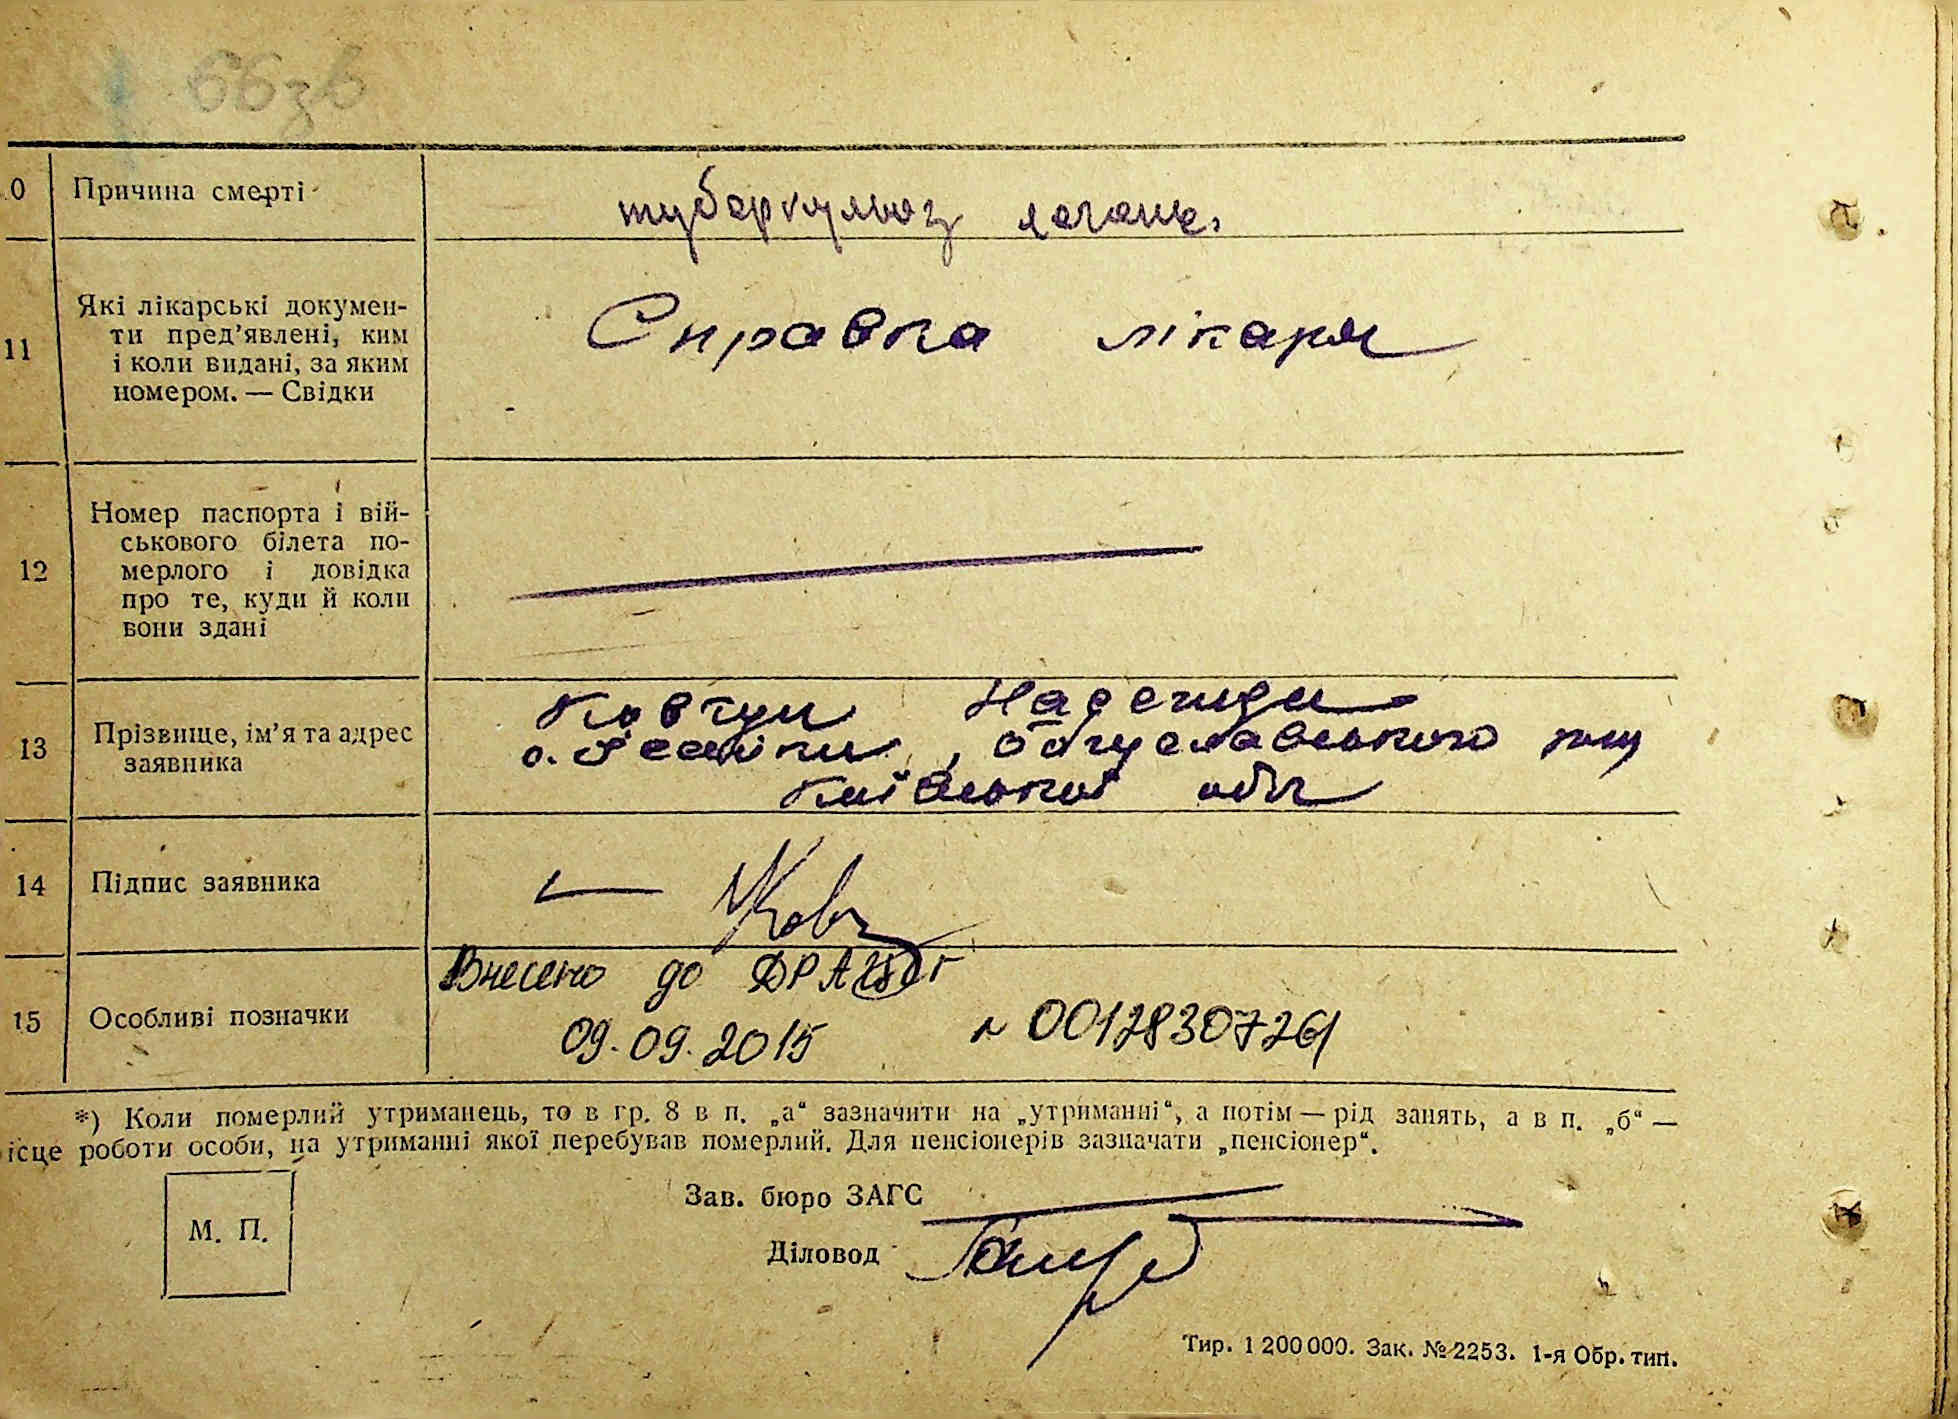 66зв
0 Причина смерті туберкульоз легень
11 Які лікарські докумен-
ти пред’явлені, ким
і коли видані, за яким
номером. — Свідки
Справка лікаря
12 Номер паспорта і вій-
ськового білета по-
мерлого і довідка
про те, куди й коли
вони здані
13 Прізвище, ім’я та адрес
заявника
Ковтун
Богуславського
Київської обл
14 Підпис заявника Ков
15 Особливі позначки
Внесено до ДРАЦСГ
09.09.2015 № 00128307261
*) Коли померлий утриманець, то в гр. 8 в п. „а“ зазначити на „утриманні“, а потім — рід занять, а в п. „б“ —
ісце роботи особи, на утриманні якої перебував померлий. Для пенсіонерів зазначати „пенсіонер“.
М. П.
Зав. бюро ЗАГС
Діловод
Тир. 1 200 000. Зак. № 2253. 1-я Обр. тип.